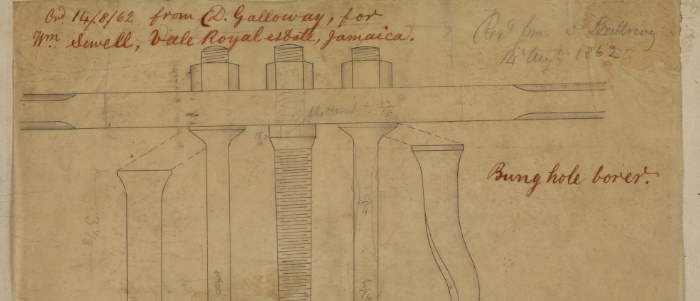 Ord. 14/8/62 from D. Galloway, for
Wm Sewell, Vale Royal estate, Jamaica.
Recd from D. Galloway
14 Augt 1862
Bung hole borer.
3 7/8
5/16